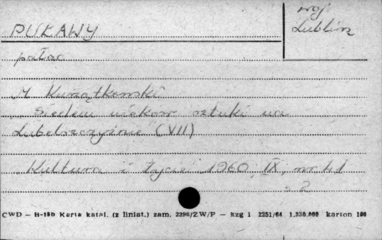 PUŁAWY
woj
Lublin
pałac
M Kurzątkowski
Siedem wieków sztuki na
Lubelszczyźnie (VII)
Kultura i Życie 1960, IX, nr 41
s 2
CWD — H-18b Karta katal. (z liniat.) zam. 2396/ZW/P — Rzg 1 2251/64 1,330.000 karton 180